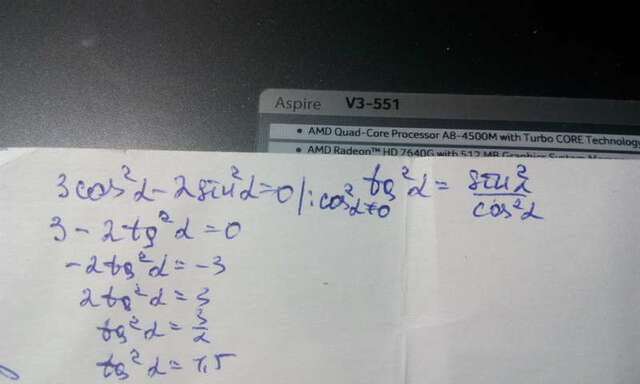 Aspire V3-551
• AMD Quad-Core Processor A8-4500M with Turbo CORE Technology
• AMD Radeon™ HD 7640G with 512 MB Graphics System
3cos²α - 2sin²α = 0 | : cos²α ≠ 0 tg²α = sin²α / cos²α
3 - 2tg²α = 0
-2tg²α = -3
2tg²α = 3
tg²α = 3/2
tg²α = 1,5